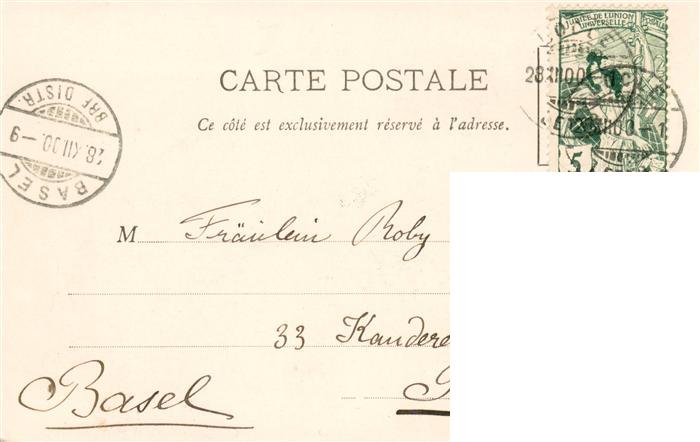 JUBILÉ DE L'UNION POSTALE
UNIVERSELLE
CARTE POSTALE
28 XII 00
Ce côté est exclusivement réservé à l'adresse.
BRF. DISTR.
28.XII.00.–9
BASEL
5
M Fräulein Roby
33 Kandere
Basel